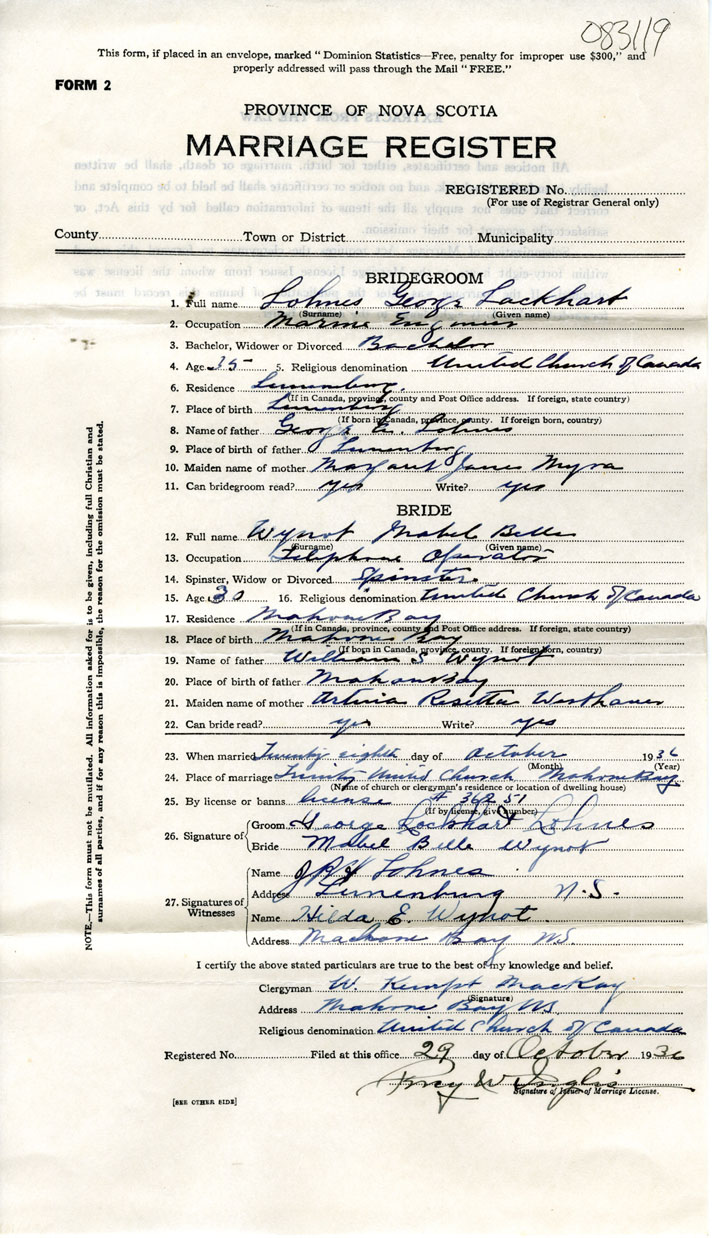 083119
This form, if placed in an envelope, marked "Dominion Statistics—Free, penalty for improper use $300," and
properly addressed will pass through the Mail "FREE."
FORM 2
PROVINCE OF NOVA SCOTIA
MARRIAGE REGISTER
REGISTERED No.
(For use of Registrar General only)
County Town or District Municipality
BRIDEGROOM
1. Full name Lohnes George Lockhart
(Surname) (Given name)
2. Occupation Marine Engineer
3. Bachelor, Widower or Divorced Bachelor
4. Age 35 5. Religious denomination United Church of Canada
6. Residence Lunenburg.
(If in Canada, province, county and Post Office address. If foreign, state country)
7. Place of birth Lunenburg
(If born in Canada, province, county. If foreign born, country)
8. Name of father George Lohnes
9. Place of birth of father Lunenburg
10. Maiden name of mother Margaret Jane Myra
11. Can bridegroom read? yes Write? yes
BRIDE
12. Full name Wynot Mabel Belle
(Surname) (Given name)
13. Occupation Telephone Operator
14. Spinster, Widow or Divorced Spinster.
15. Age 30 16. Religious denomination United Church of Canada
17. Residence Mahone Bay
(If in Canada, province, county and Post Office address. If foreign, state country)
18. Place of birth Mahone Bay
(If born in Canada, province, county. If foreign born, country)
19. Name of father William S Wynot
20. Place of birth of father Mahone Bay
21. Maiden name of mother Rosetta
22. Can bride read? yes Write? yes
23. When married Twenty eighth day of October 1936
(Month) (Year)
24. Place of marriage Trinity United Church Mahone Bay
(Name of church or clergyman's residence or location of dwelling house)
25. By license or banns license # 36251
(If by license, give number)
26. Signature of Groom George Lockhart Lohnes
Bride Mabel Belle Wynot
27. Signatures of Witnesses Name Lohnes
Address Lunenburg N.S.
Name Hilda E. Wynot
Address Mahone Bay NS.
I certify the above stated particulars are true to the best of my knowledge and belief.
Clergyman W. Kempt MacKay
(Signature)
Address Mahone Bay NS
Religious denomination United Church of Canada
Registered No. Filed at this office 29 day of October 1936
W Inglis
Signature of Issuer of Marriage License.
[SEE OTHER SIDE]
NOTE.—This form must not be mutilated. All information asked for is to be given, including full Christian and
surnames of all parties, and if for any reason this is impossible, the reason for the omission must be stated.